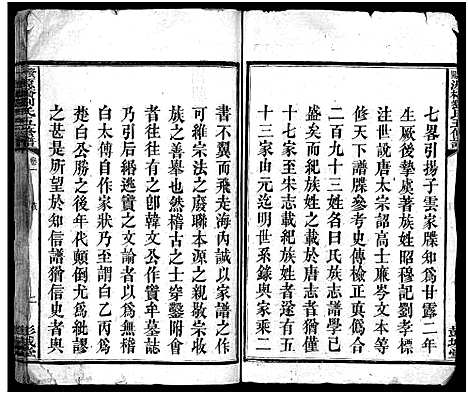 七畧引揚子雲家牒知為甘露二年
生厥後摯虞著族姓昭穆記劉孝標
注世說唐太宗詔高士廉岑文本等
修天下譜牒參考史傳檢正真偽合
二百九十三姓名曰氏族志譜學已
盛矣而紀族姓之載於唐志者猶僅
十七家至朱志載紀族姓者遂有五
十三家由元迄明世系錄與家乘二
書不翼而飛走海內誠以家譜之作
可維宗法之廢聯本源之親敬宗收
族之善舉也然稽古之士穿鑿附會
者往往有之卽韓文公作畢墓誌
乃引后緡逃竇之文論者以為失實
白太傅自作家狀乃至以白乙丙為
楚白公勝之後年代顛倒尤為紕謬
之甚是所望於知信譜猶信史者與
彭城堂